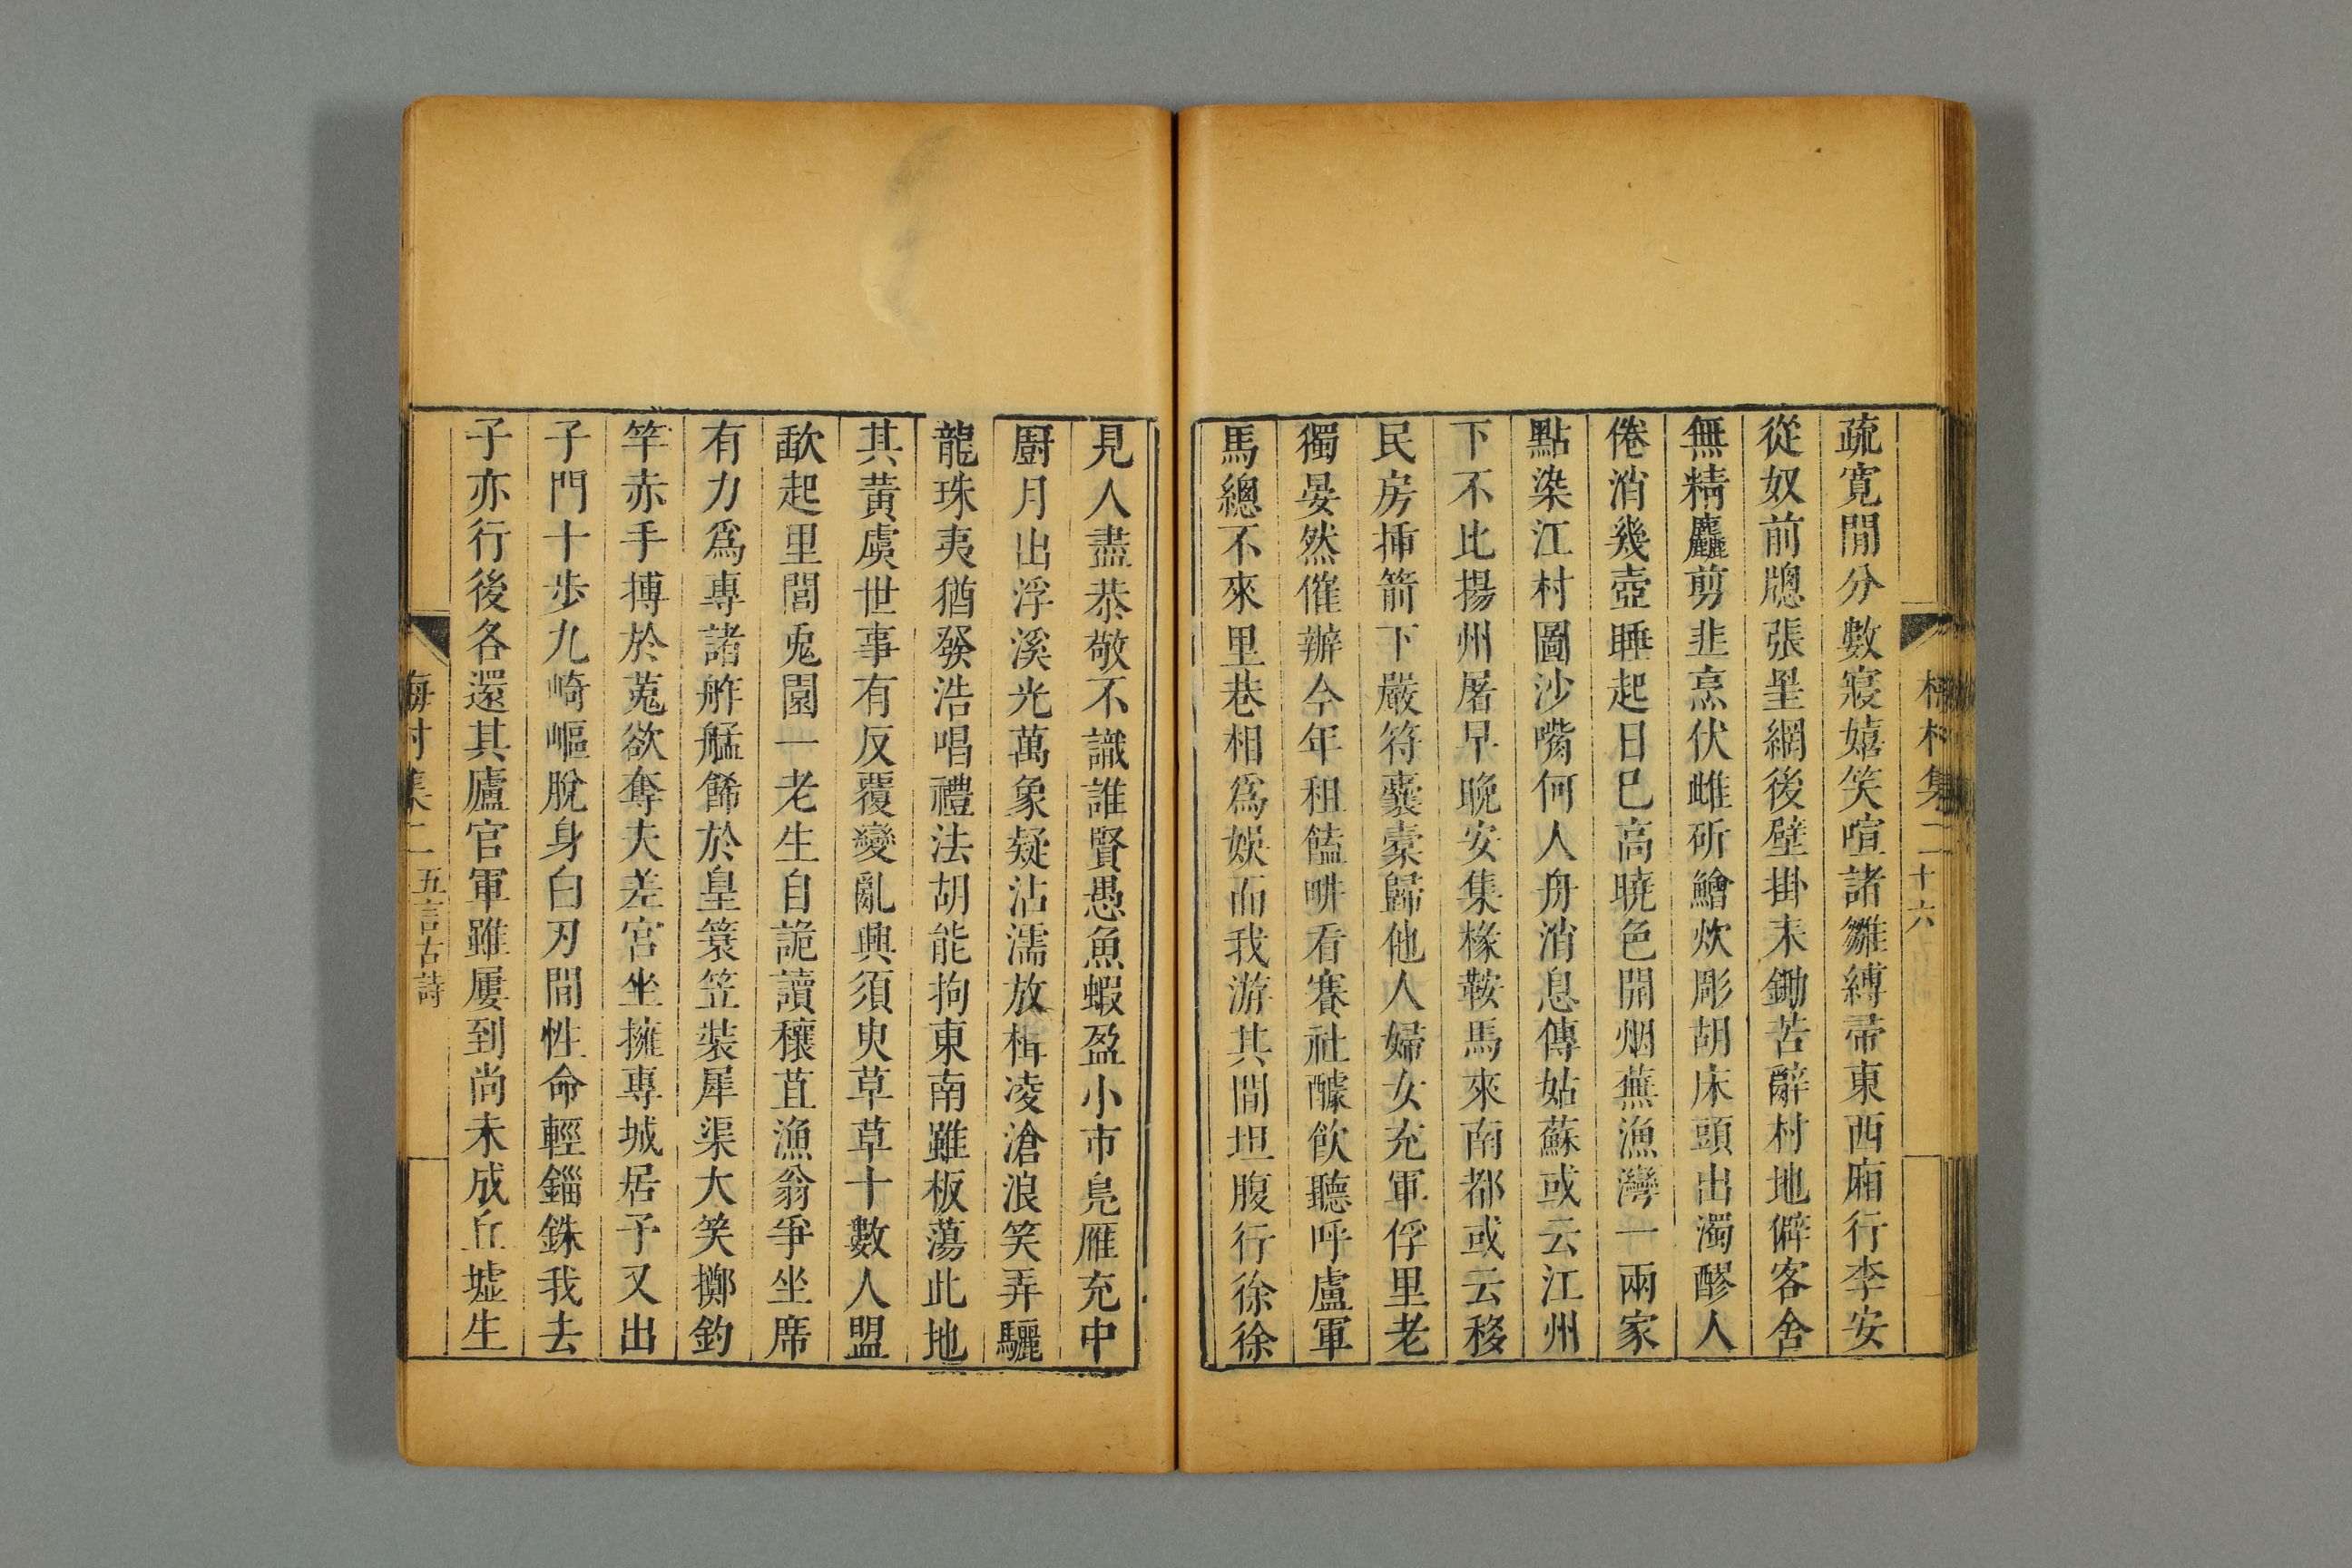 梅村集二十六
疏寛閒分數寢嬉笑喧諸雛縛帚東西廂行李安
從奴前牕張罣網後壁掛耒鋤苦辭村地僻客舍
無精麤剪韭烹伏雌斫鱠炊彫胡床頭出濁醪人
倦消幾壺睡起日巳高曉色開烟蕪漁灣一兩家
點染江村圖沙嘴何人舟消息傳姑蘇或云江州
下不比揚州屠早晚安集椽鞍馬來南都或云移
民房揷箭下嚴符囊橐歸他人婦女充軍俘里老
獨晏然催辦今年租饁畊看賽社醵飲聽呼盧軍
馬總不來里巷相爲娛而我游其間坦腹行徐徐
見人盡恭敬不識誰賢愚魚蝦盈小市鳧雁充中
廚月出浮溪光萬象疑沾濡放楫凌滄浪笑弄驪
龍珠夷猶發浩唱禮法胡能拘東南雖板蕩此地
其黃虞世事有反覆變亂興須臾草草十數人盟
歃起里閭兎園一老生自詭讀穰苴漁翁爭坐席
有力爲專諸舴艋餙於皇簑笠裝犀渠大笑擲釣
竿赤手搏於菟欲奪夫差宮坐擁專城居予又出
子門十步九崎嶇脫身白刃間性命輕錙銖我去
子亦行後各還其廬官軍雖屢到尚未成丘墟生
梅村集二 五言古詩